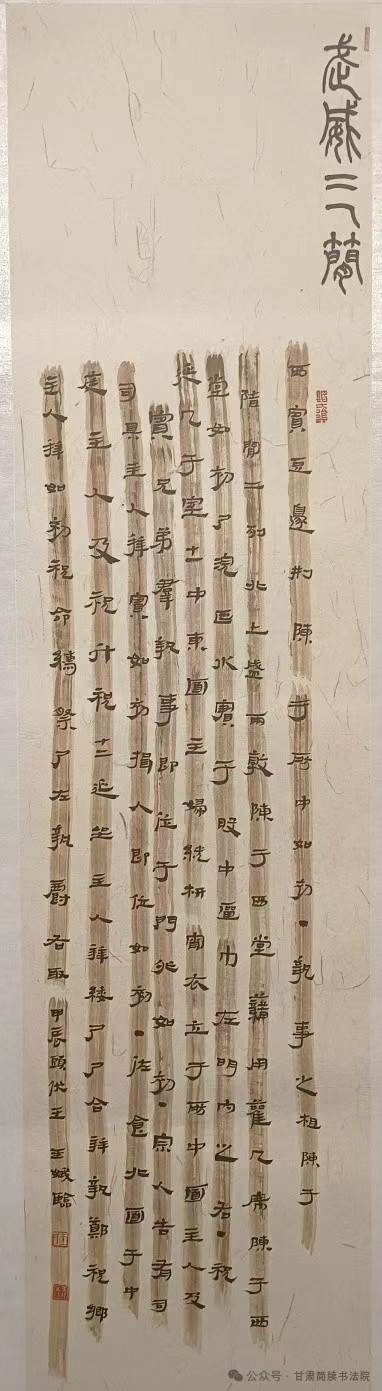 武威二人簡
西實豆籩刑陳于房中如初·執事之相陳于
階閒二列北上盛兩敦陳于西堂藉用萑几席陳于西
堂如初尸浣匜水實于股中簞巾在門內之右·祝
延几于室中東面主婦纚枅宵衣立于房中面主人及
賓兄弟羣執事即位于門外如初·宗人告有司
司具主人拜賓如初揖人即位如初·佐食北面于中
庭主人及祝升祝追坐主人拜綏尸尸合拜執鄭祝鄉
主人拜如初祝命繻祭尸左執爵右取
甲辰頭伏王 王斌臨
公众号·甘肃简牍书法院